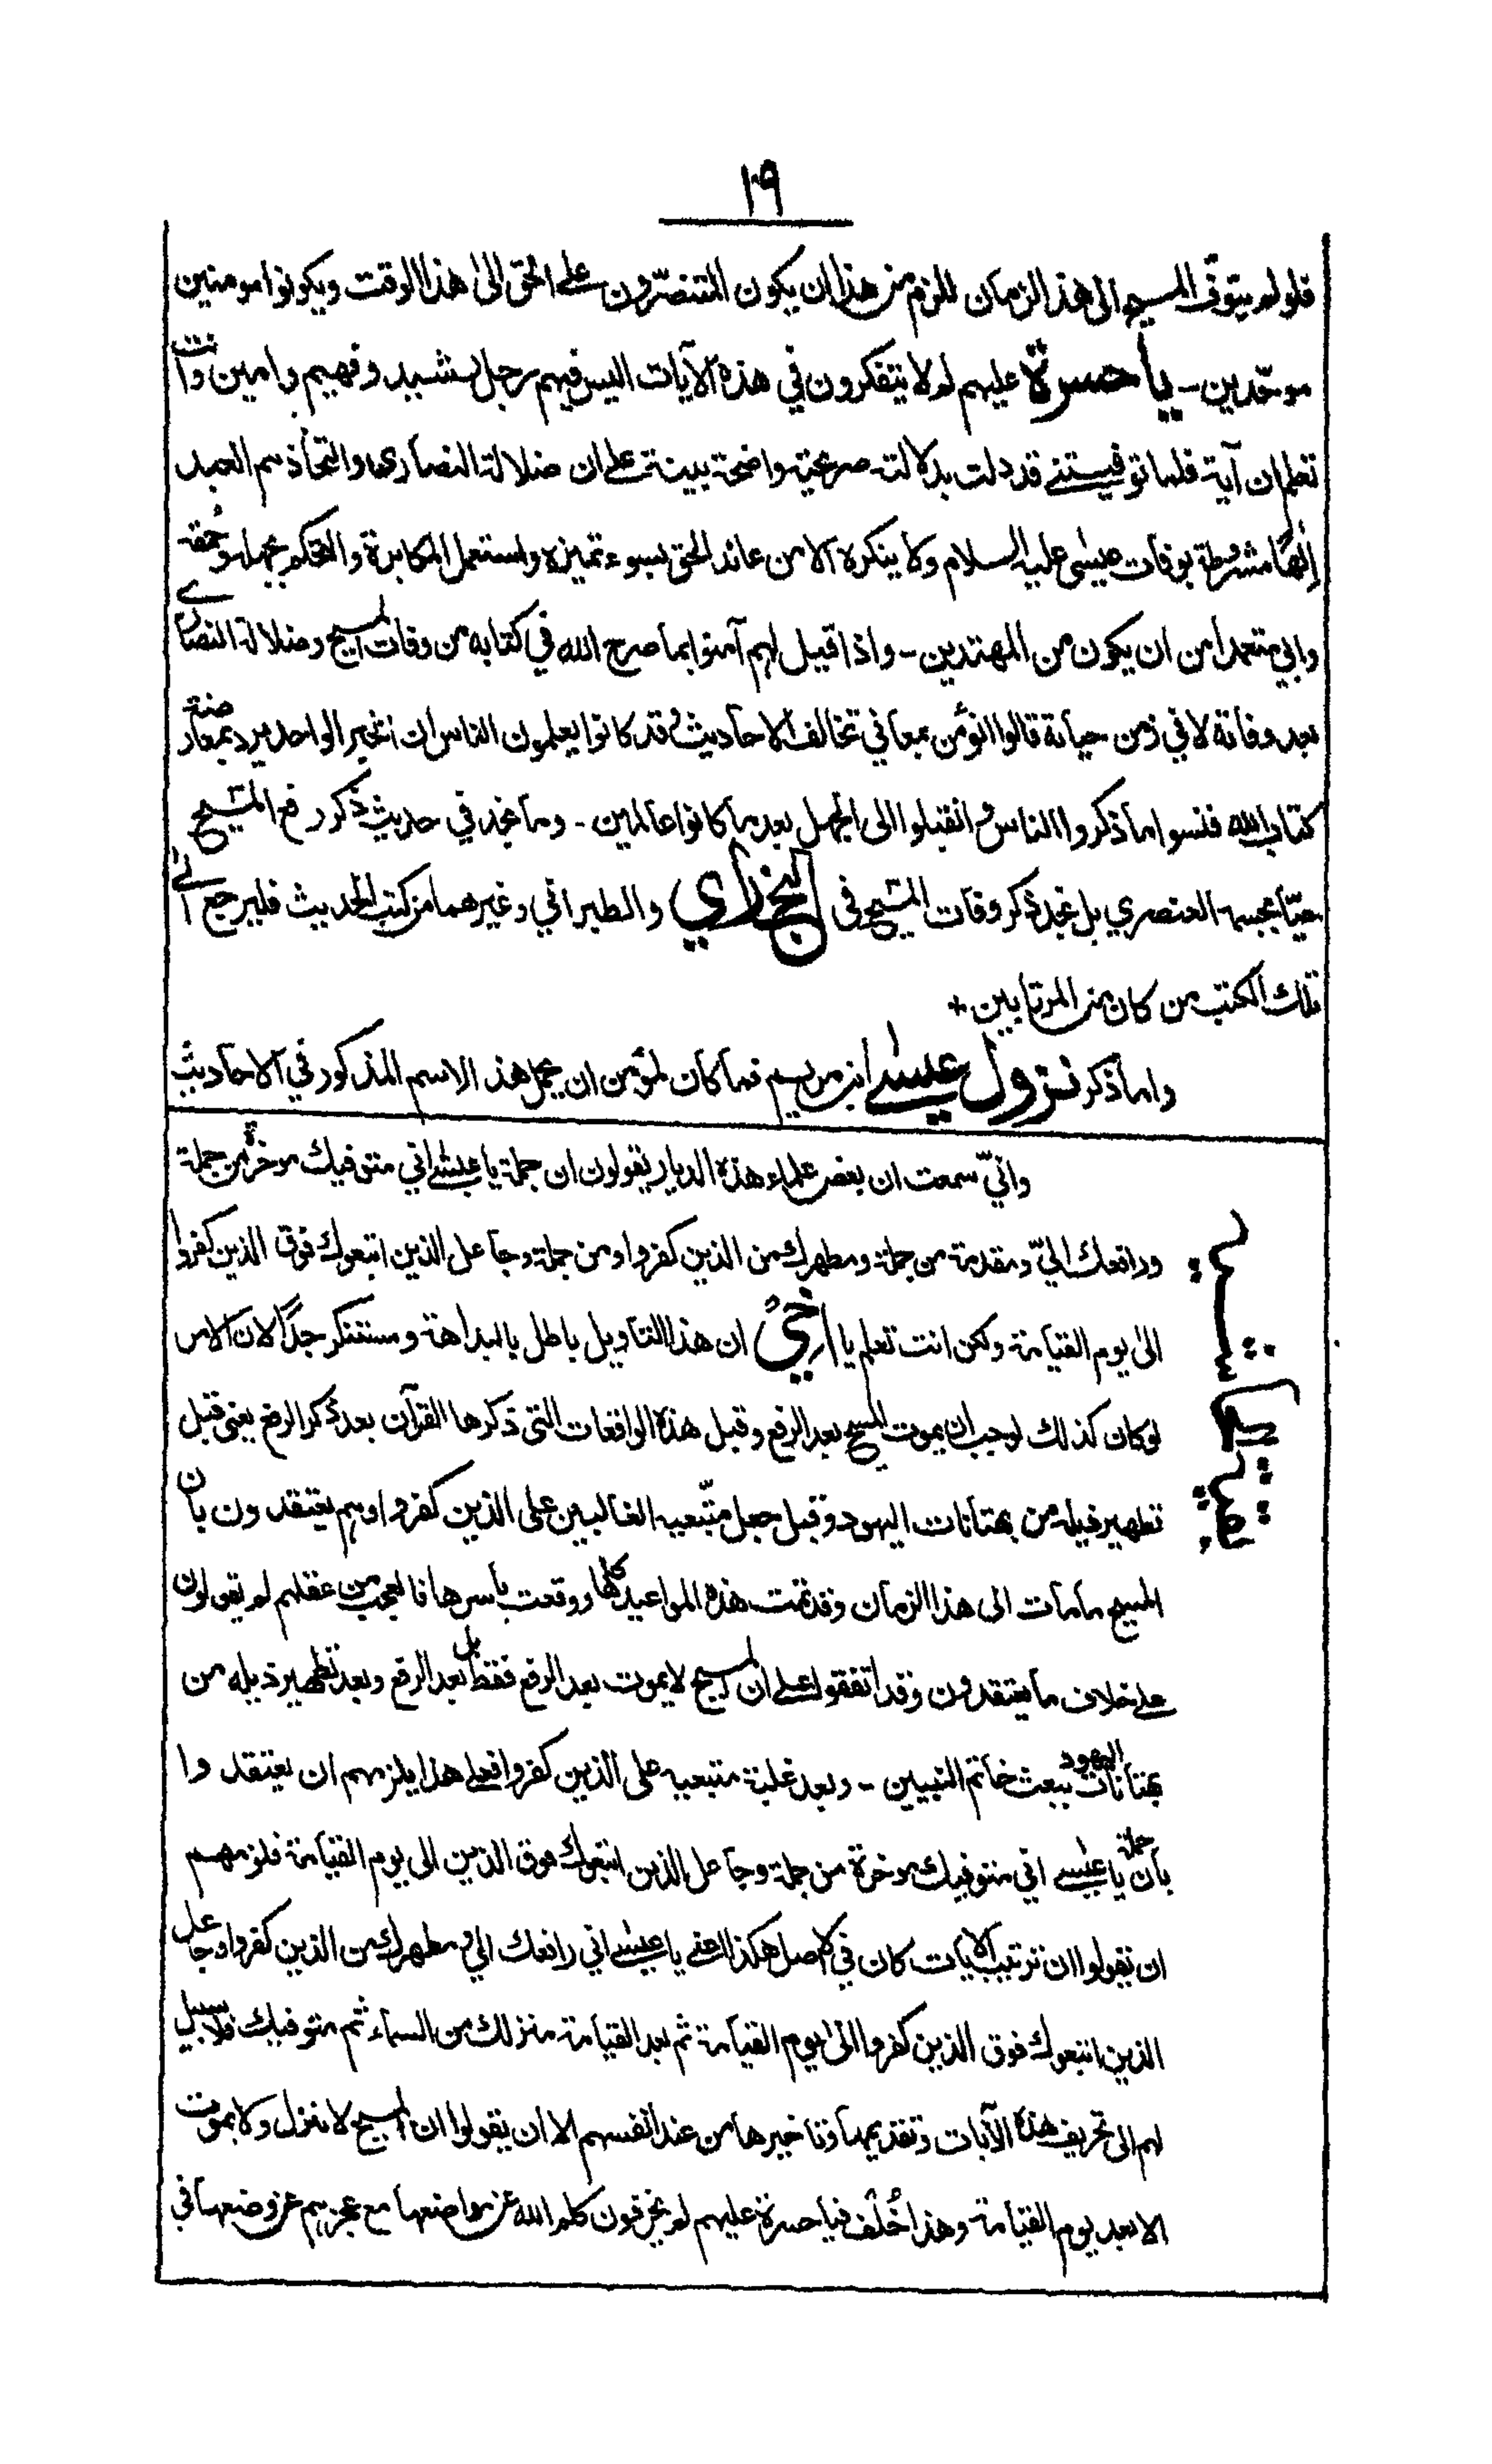 ١٩
فلو لم يتوفّ المسيح الى هذا الزمان للزم من هذا ان يكون المتنصّرون على الحق الى هذا الوقت ويكونوا مومنين
موحّدين - يا حسرة عليهم لم لا يتفكرون في هذه الآيات اليس فيهم رجل رشيد وفهيم وامين وانت
تعلم ان آية فلما توفيتنى قد دلت بدلالة صريحة واضحة بينة على ان ضلالة النصارى واتخاذهم العبد
الٰهًا مشروطة بوفات عيسى عليه السلام ولا ينكره الا من عاند الحق بسوء تميزه واستعمل المكابرة والتحكم بجهله وحمقه
وابي متعمدا من ان يكون من المهتدين - واذا قيل لهم آمنوا بما صرح الله في كتابه من وفات المسيح وضلالة النصارى
بعد وفاته لا في زمن حياته قالوا انؤمن بمعاني تخالف الاحاديث وقد كانوا يعلمون الناس ان الخبر الواحد يرد بمعارضة
كتاب الله فنسوا ما ذكروا الناس وانقلبوا الى الجهل بعد ما كانوا عالمين - وما نجد في حديث ذكر رفع المسيح
حيّا بجسمه العنصري بل نجد ذكر وفات المسيح فى البخاري والطبراني وغيرهما من كتب الحديث فليرجع الى
تلك الكتب من كان من المرتابين +
واما ذكر نزول عيسى ابن مريم فما كان لمؤمن ان يحمل هذا الاسم المذكور في الاحاديث
وانيّ سمعت ان بعض علماء هذه الديار يقولون ان جملة يا عيسى اني متوفيك موخرة من جملة
ورافعك اليّ ومقدمة من جملة ومطهرك من الذين كفروا ومن جملة وجاعل الذين اتبعوك فوق الذين كفروا
الى يوم القيامة ولكن انت تعلم يا اخيّ ان هذا التاويل باطل بالبداهة ومستنكر جدًّا لان الامر
لو كان كذلك لوجب ان يموت المسيح بعد الرفع وقبل هذه الواقعات التي ذكرها القرآن بعد ذكر الرفع يعنى قبل
تطهير ذيله من بهتانات اليهود وقبل جعل متّبعيه الغالبين على الذين كفروا وهم يعتقدون بان
المسيح ما مات الى هذا الزمان وقد تمت هذه المواعيد كلها ووقعت باسرها فالعجب من عقلهم لم يقولون
على خلاف ما يعتقدون وقد اتفقوا على ان المسيح لا يموت بعد الرفع فقط بل بعد الرفع وبعد تطهير ذيله من
بهتانات اليهود ببعث خاتم النبيين - وبعد غلبة متبعيه على الذين كفروا فعلى هذا يلزمهم ان يعتقدوا
بان جملة يا عيسى اني متوفيك موخرة من جملة وجاعل الذين اتبعوك فوق الذين الى يوم القيامة فلزمهم
ان يقولوا ان ترتيب الآيات كان في الاصل هكذا اعنى يا عيسى اني رافعك الي ومطهرك من الذين كفروا وجاعل
الذين اتبعوك فوق الذين كفروا الى يوم القيامة ثم بعد القيامة منزلك من السماء ثم متوفيك فلا سبيل
لهم الى تحريف هذه الآيات وتقديمها وتاخيرها من عند انفسهم الا ان يقولوا ان المسيح لا ينزل ولا يموت
الا بعد يوم القيامة وهذا خُلف فيا حسرة عليهم لم يحرفون كلم الله عن مواضعها مع عجزهم عن وضعها في